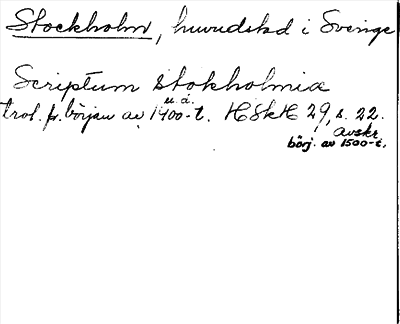 Stockholm, huvudstad i Sverige
Scriptum stokholmiæ
u.å.
trol. fr. början av 1400-t. HSkH 29, s. 22.
avskr.
börj. av 1500-t.